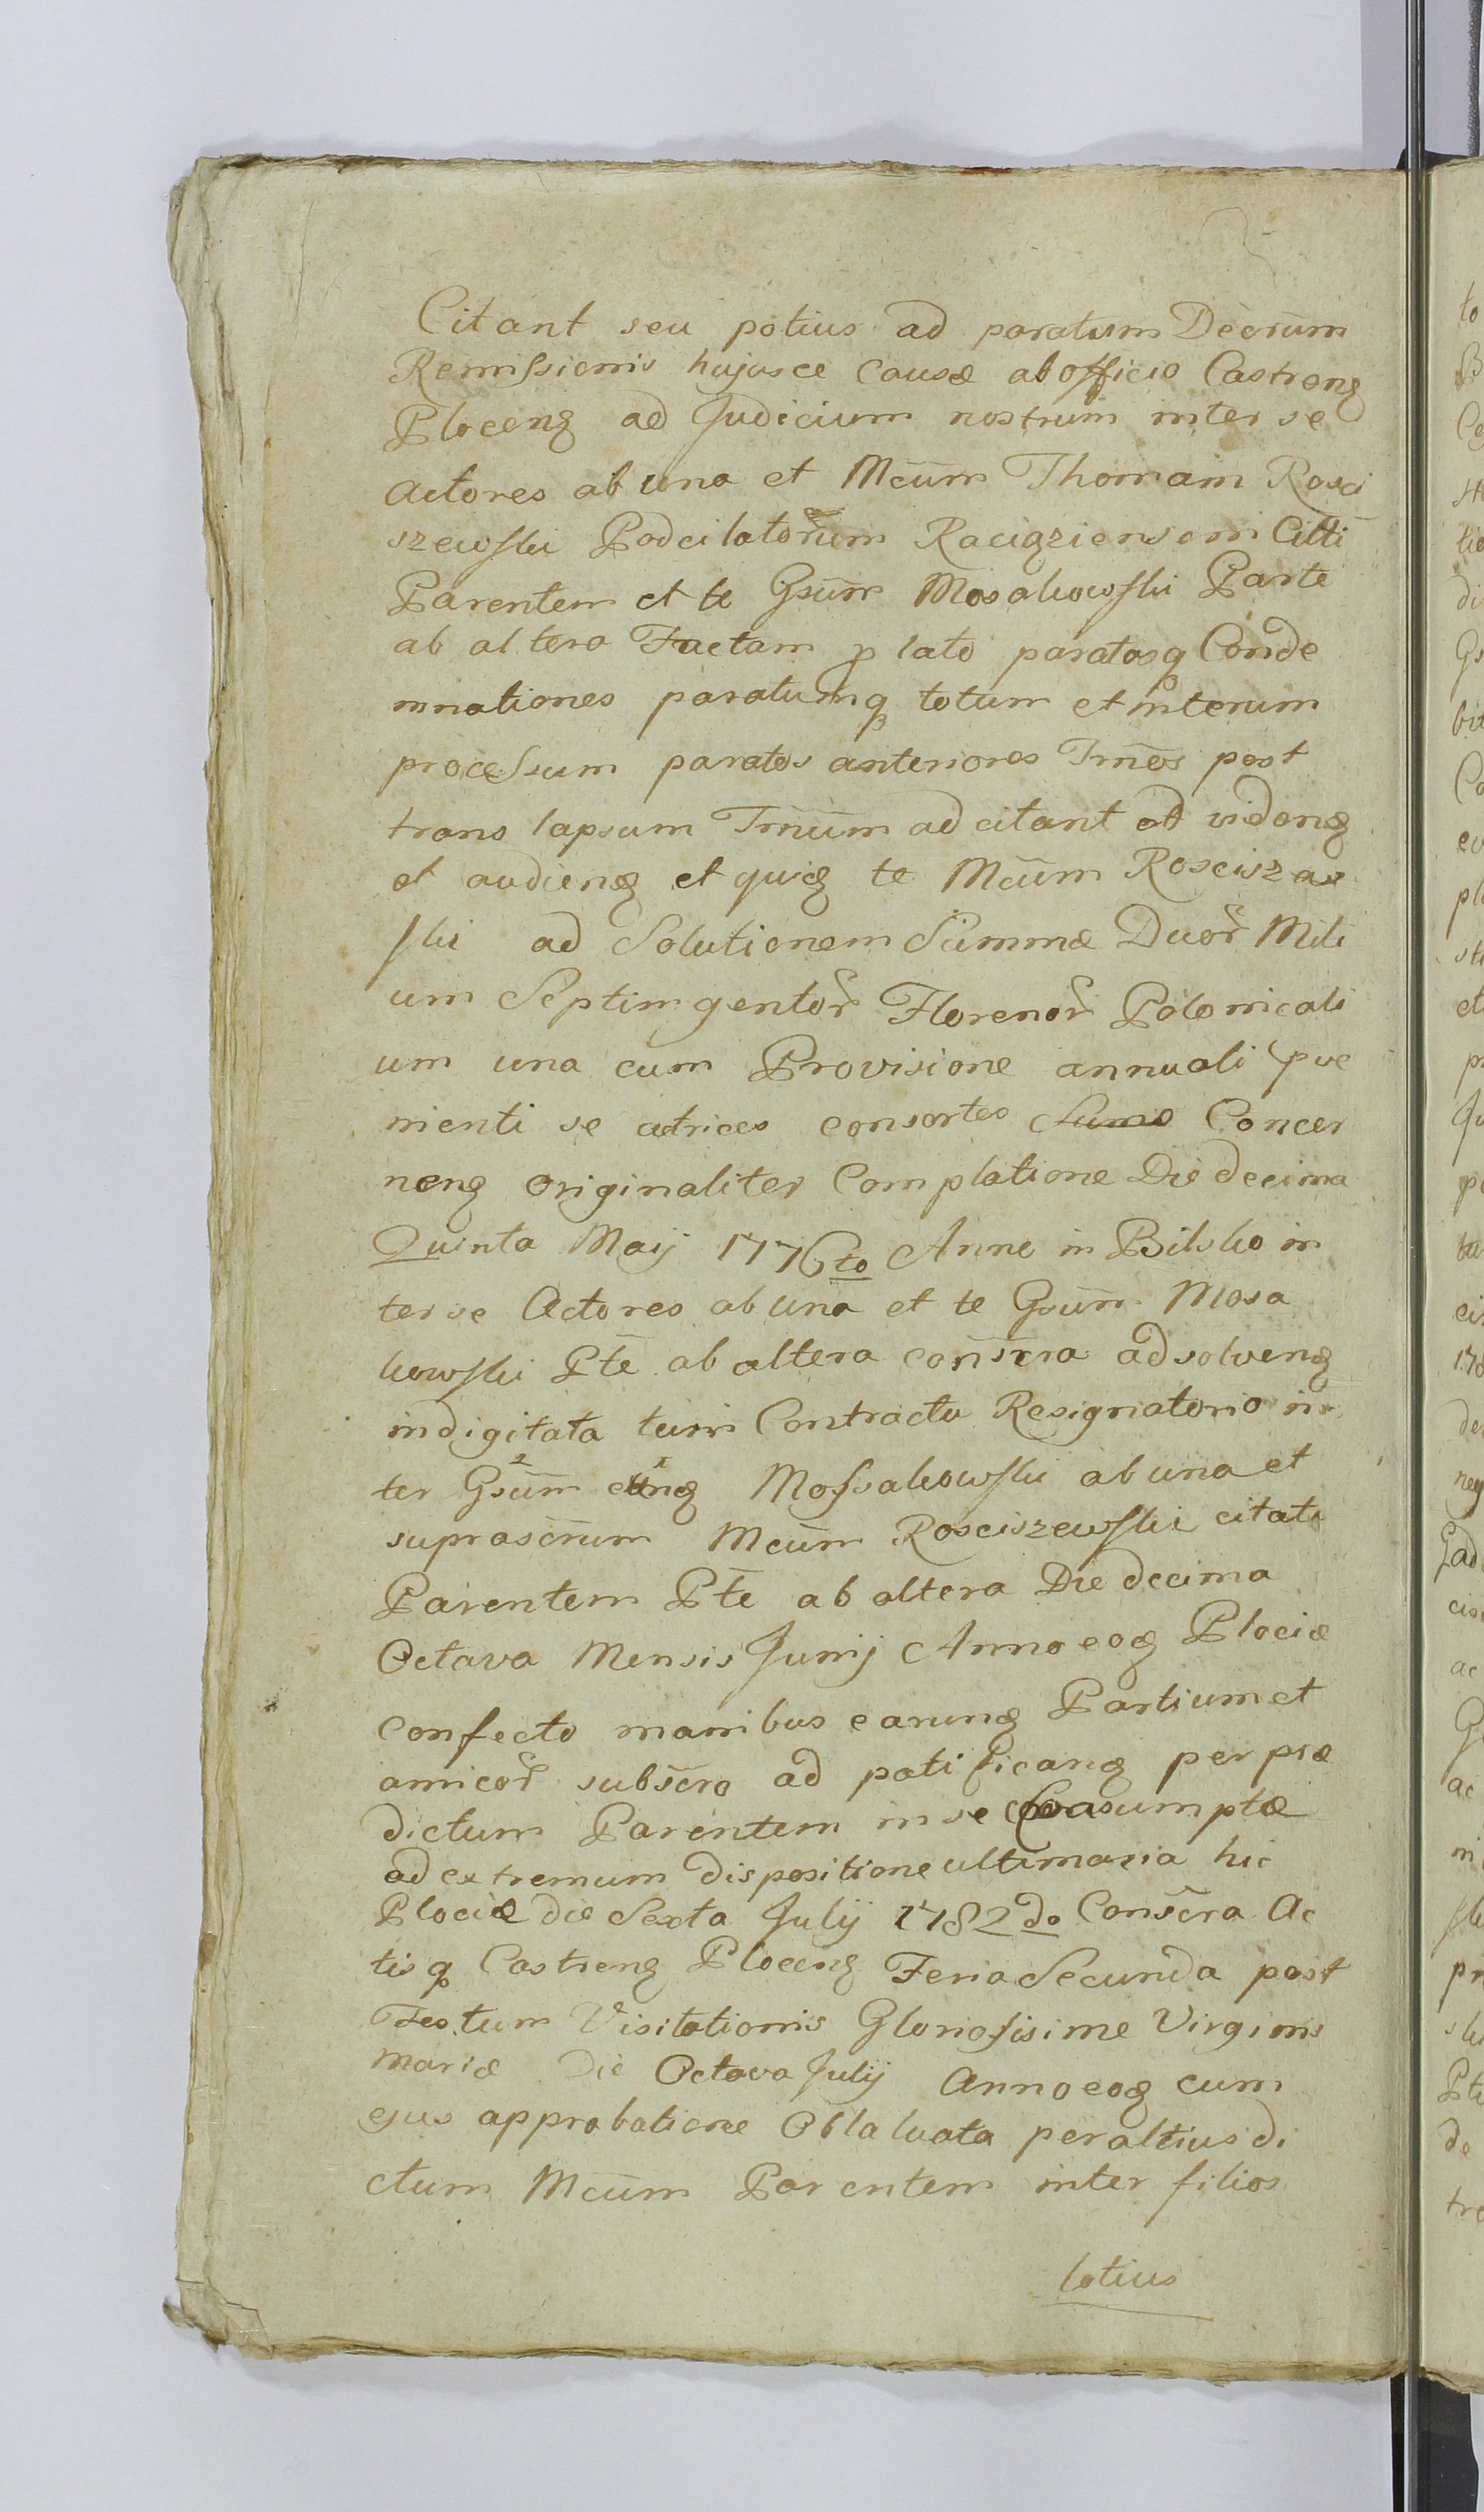 Citant seu potius ad paratum Decrum
Remissionis hujusce Causæ ab officio Castrenʒ
Plocenʒ ad Judicium nostrum inter se
Actores ab una et Mcum Thomam Rosci
szewski Podcilatorum Raciąziensem Citti
Parentem et te Gsum Mosakowski Parte
ab altera Factam p lato paratasq Conde
mnationes paratumq totum et interum
processum paratos anteriores Trnos post
trans lapsum Trnum ad citant ad videnʒ
et audienʒ et quiʒ te Mcum Rosciszew
ski ad Solutionem Summæ Duor Mili
um Septimgentor Florenor Polonicali
um una cum Provisione annuali pve
nienti se actrices consortes Concer
nenʒ originaliter Complatione Die decima
Quinta Maij 1776to Anno in Bilsko in
ter se Actores ab una et te Gsum Mosa
kowski Pte ab altera conscra adsolvenʒ
indigitata tum Contractu Resignatorio in
ter Gsum Mossakowski ab una et
suprascrum Mcum Rosciszewski citati
Parentem Pte ab altera Die decima
Octava Mensis Junij Anno eoʒ Plociæ
confecto manibus earunʒ Partium et
amicor subscro ad patificanʒ per præ
dictum Parentem in se Coasumptæ
ad extremum dispositione ultimaria hic
Plociæ die Sexta Julij 1782do Conscra Ac
tisq Castrenʒ Plocenʒ Feria Secunda post
Festum Visitationis Gloriosisime Virginis
Mariæ Die Octava Julij Anno eoʒ cum
ejus approbatione Oblaluata per altius di
ctum Mcum Parentem inter filios
latius